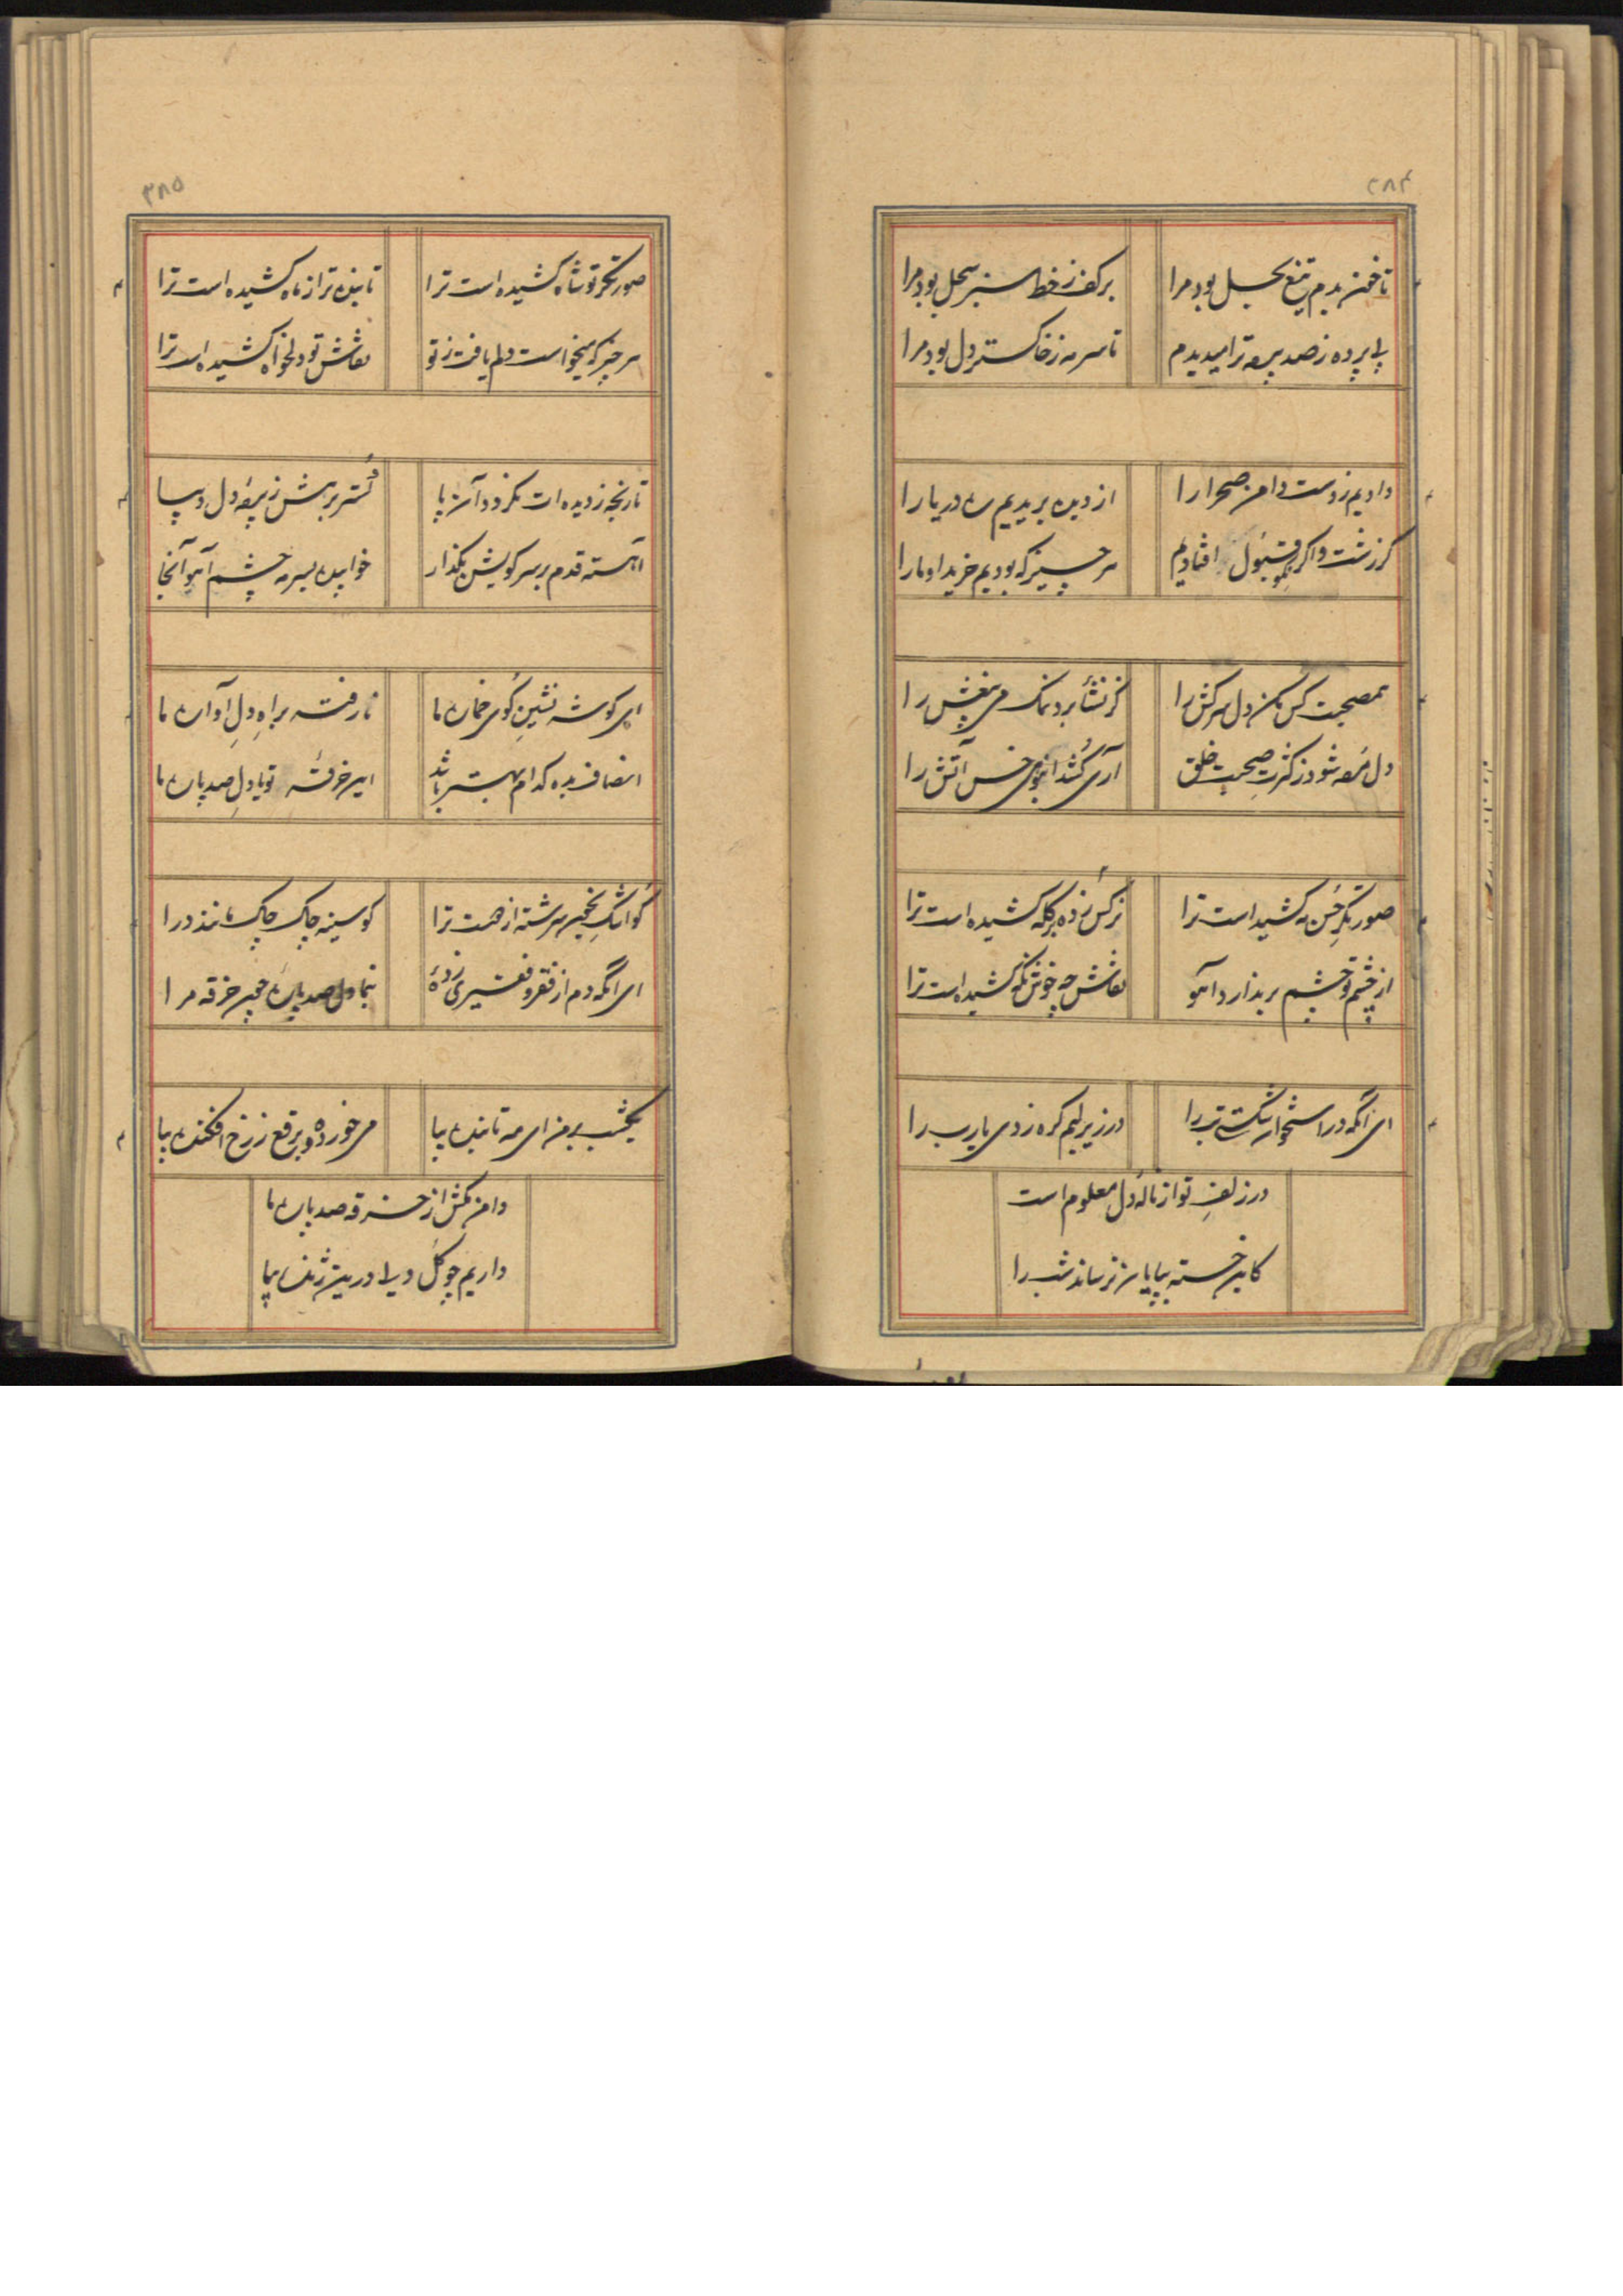 ۲۸۴
تا خون بدم تیغ بحل بود مرا
بر کف ز خط سبز سجل بود مرا
بی پرده ز صد پرده ترا میدیدم
تا سرمه ز خاکستر دل بود مرا
دادیم ز دست دامن صحرا را
از دیده بریدیم ره دریا را
گر زشت و اگر قبول افتادیم
هر چیز که بودیم خرید او ما را
بمصحبت کس مکن دل سرکش را
کز نشأ برد نمک می بیغش را
دل مرده شود ز کثرت صحبت خلق
آری کشد انبوهی خس آتش را
صورتگر حسن مه کشیدست ترا
نرگس زده بر کله کشیده است ترا
از چشم تو چشم بر ندارد آهو
نقاش چه خوش نگه کشیده است ترا
ای آنکه در استخوان شکستی تب را
در زیر لبم گره زدی یارب را
در زلف تو از ناله دل معلوم است
کاین خسته بپایان نرساند شب را
۳۸۵
صورتگر تو شاه کشیده است ترا
تابنده تر از ماه کشیده است ترا
هر چیز که میخواست دلم یافت ز تو
نقاش تو دلخواه کشیده است ترا
تا رنجه ز دیده ات نگردد آن پا
گستر برهش ز پرده دل دیبا
آهسته قدم بر سر کویش بگذار
خوابیده بسرمه چشم آهو آنجا
ای گوشه نشین کوی خمار ما
نا رفته براه دل آواره ما
انصاف بده کدام بهتر باشد
این خرقه تو یا دل صد پاره ما
کو اشک بخون سرشته از همت ترا
کو سینه چاک چاک مانند درا
ای آنکه دم از فقر و فقیری زدهٔ
بنما دل صد پاره چون خرقه مرا
یکشب بر من ای مه تابنده بیا
می خورده و برقع ز رخ افکنده بیا
دامن مکش از خرقه صد پاره ما
داریم چو گل دلی درین ژنده بیا